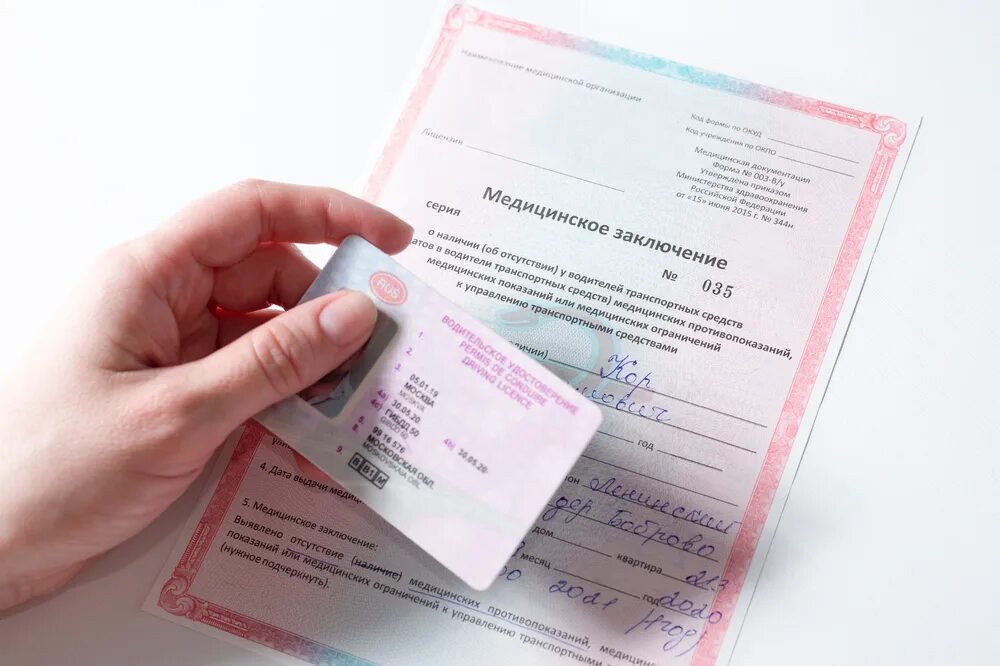 Наименование медицинской организации
Код формы по ОКУД
Код учреждения по ОКПО
Лицензия
Медицинская документация
Форма № 003-В/у
Утверждена приказом
Министерства здравоохранения
Российской Федерации
от «15» июня 2015 г. № 344н
Медицинское заключение
серия
№ 035
о наличии (об отсутствии) у водителей транспортных средств
датов в водители транспортных средств) медицинских противопоказаний,
медицинских показаний или медицинских ограничений
к управлению транспортными средствами
Кор
ович
год
он Ленинский
дер Боброво
дом
квартира 213
месяц
год 2020
2021
4. Дата выдачи меди
5. Медицинское заключение:
Выявлено отсутствие (наличие) медицинских противопоказаний, медицин
показаний или медицинских ограничений к управлению транспортными
(нужное подчеркнуть).
RUS
ВОДИТЕЛЬСКОЕ УДОСТОВЕРЕНИЕ
PERMIS DE CONDUIRE
DRIVING LICENCE
1.
2.
3. 05.01.19
МОСКВА
MOSKVA
4a) 30.05.20 4b) 30.05.20
4c) ГИБДД 50
GIBDD 50
5. 99 16 576
8. МОСКОВСКАЯ ОБЛ.
MOSKOVSKAIA OBL.
9. B B1 M